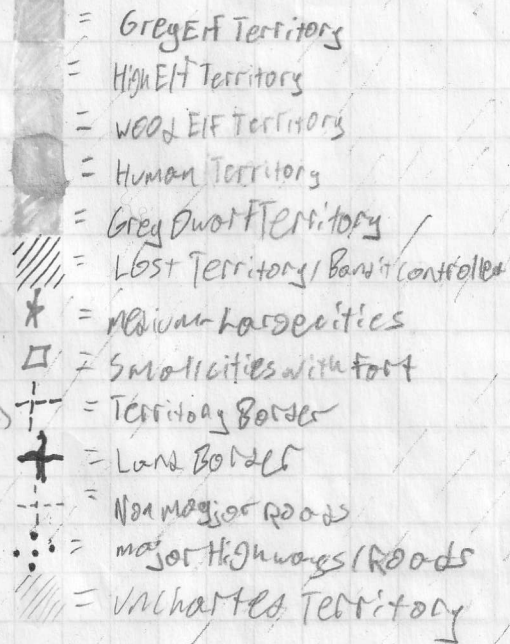 = Grey Elf Territory
= High Elf Territory
= Wood Elf Territory
= Human Territory
= Grey Dwarf Territory
= Lost Territory / Bandit controlled
= Medium-Large cities
= Small cities with Fort
= Territory Border
= Land Border
= Non magjor Roads
= major Highways / Roads
= Uncharted Territory